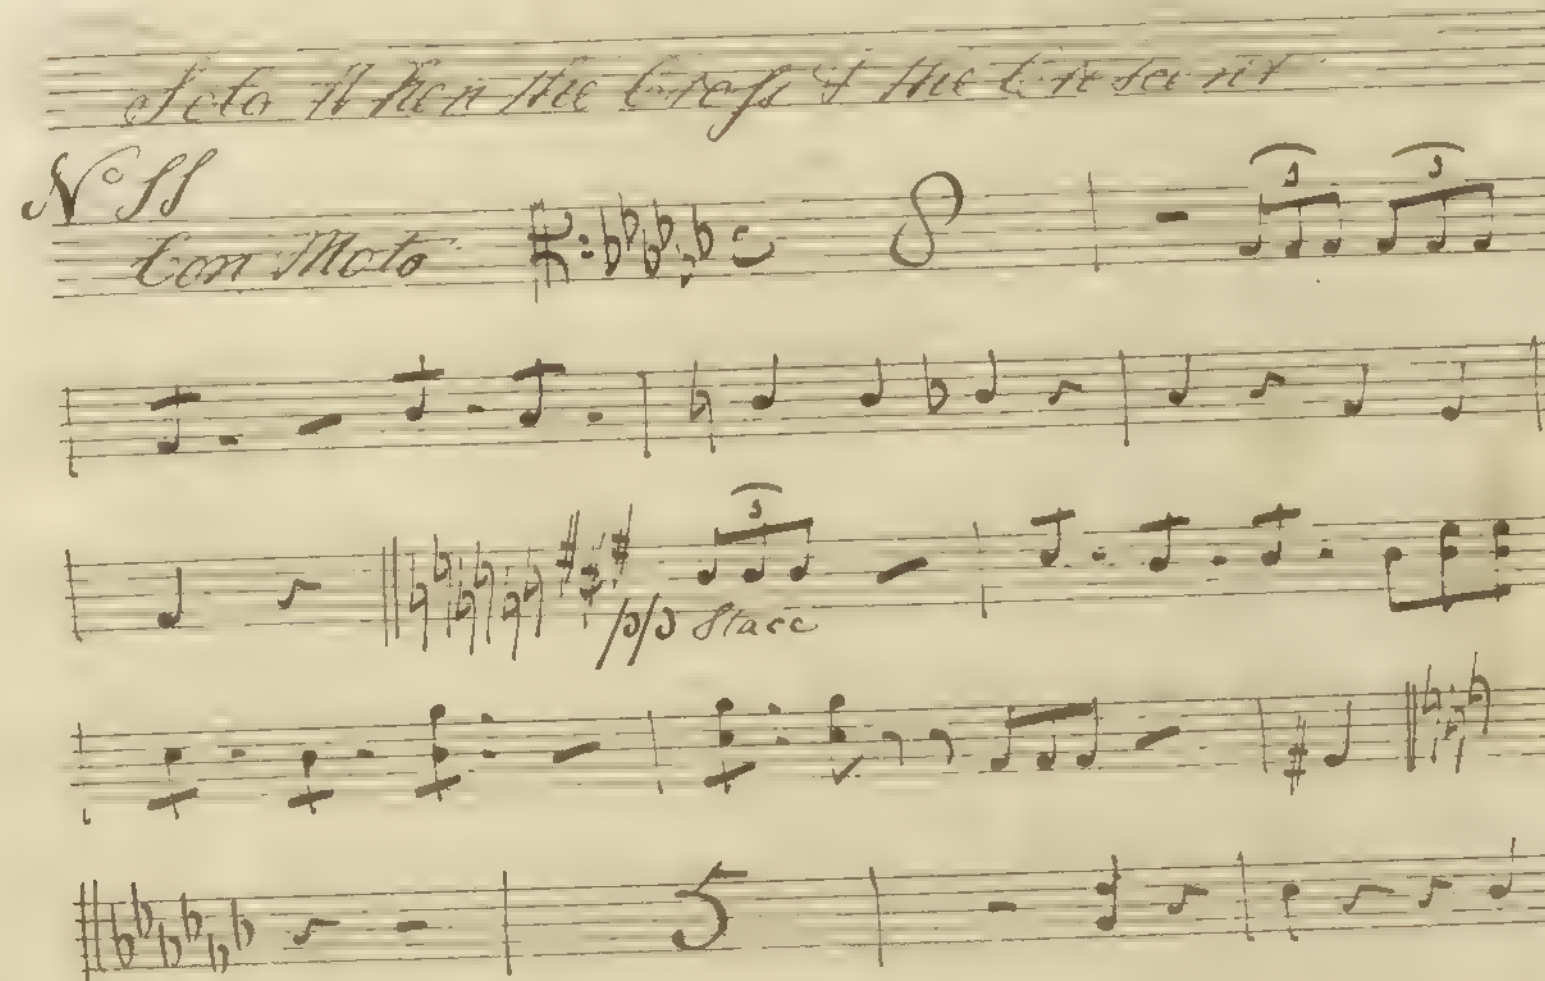 Solo When the Cross & the Crescent
No 11
Con Moto
8
3 3
3
pp Stacc
5